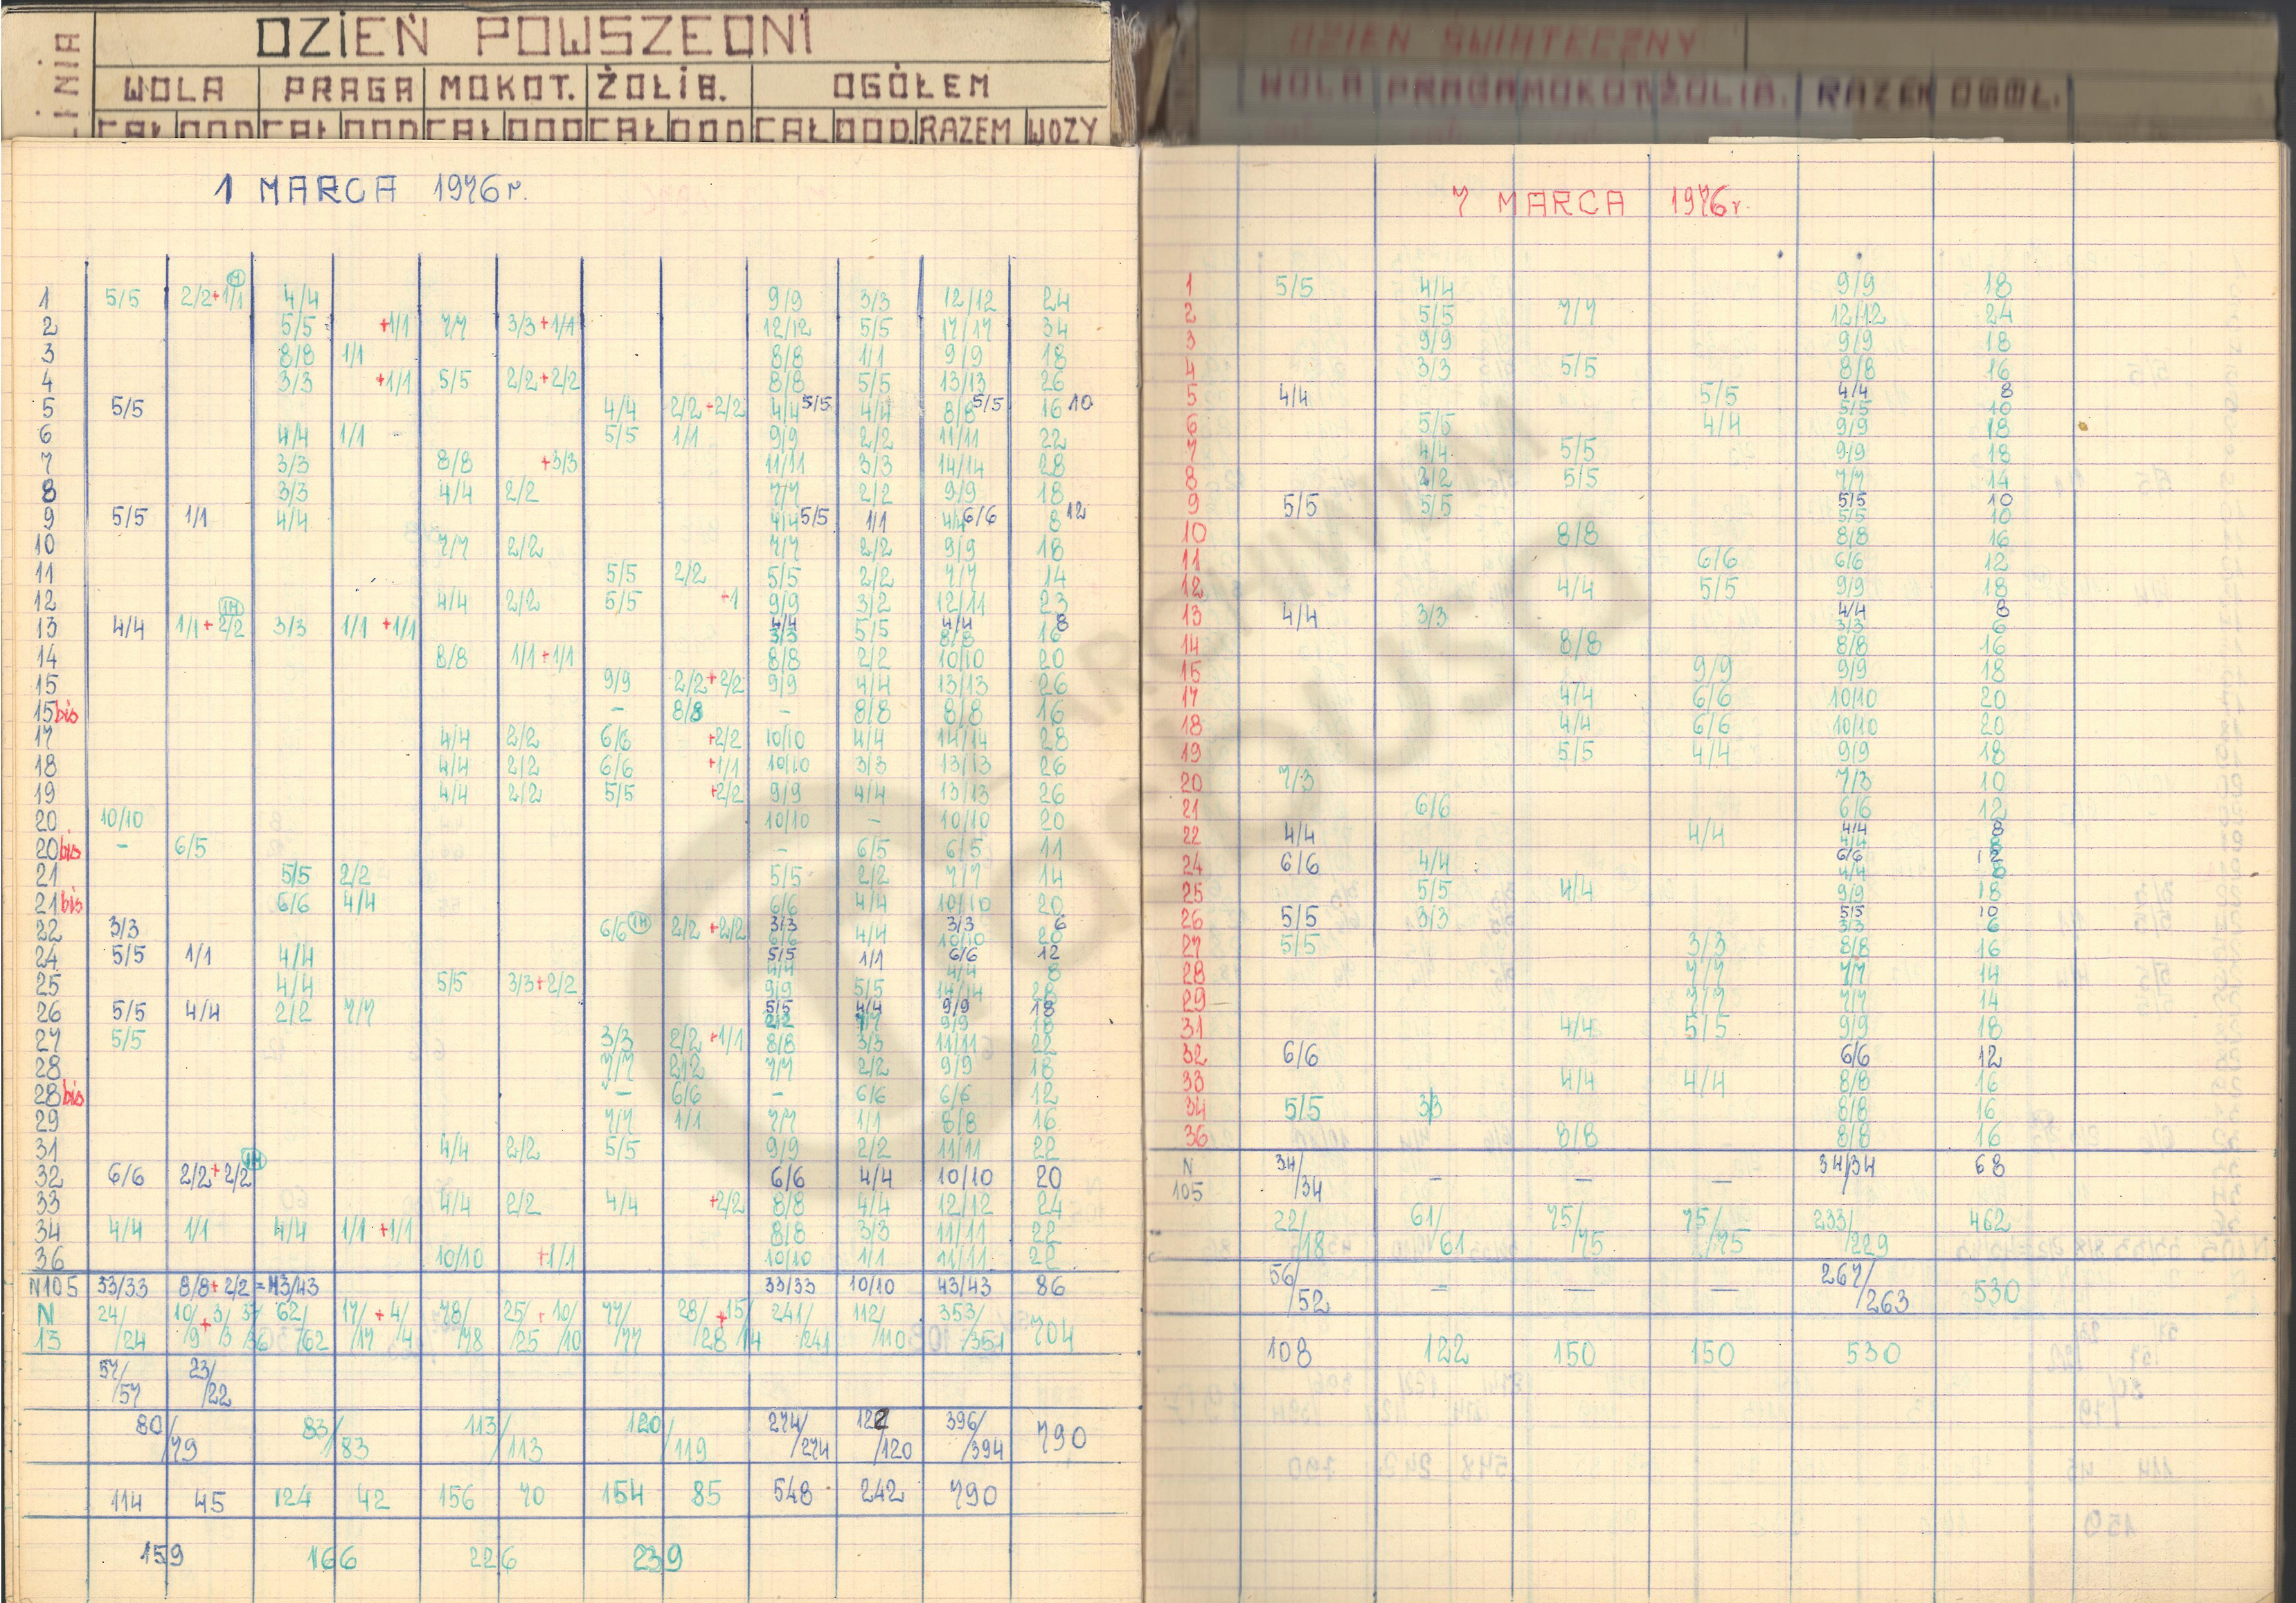 LINIA
DZIEŃ POWSZEDNI
WOLA PRAGA MOKOT. ŻOLIB. OGÓŁEM
CAŁ DOD CAŁ DOD CAŁ DOD CAŁ DOD CAŁ DOD. RAZEM WOZY
1 MARCA 1976 r.
1 5/5 2/2+1/1 4/4 9/9 3/3 12/12 24
2 5/5 +1/1 7/7 3/3+1/1 12/12 5/5 17/17 34
3 8/8 1/1 8/8 1/1 9/9 18
4 3/3 +1/1 5/5 2/2+2/2 8/8 5/5 13/13 26
5 5/5 4/4 2/2+2/2 4/4 5/5 4/4 8/8 5/5 16 10
6 4/4 1/1 - 5/5 1/1 9/9 2/2 11/11 22
7 3/3 8/8 +3/3 11/11 3/3 14/14 28
8 3/3 4/4 2/2 7/7 2/2 9/9 18
9 5/5 1/1 4/4 4/4 5/5 1/1 4/4 6/6 8 12
10 7/7 2/2 7/7 2/2 9/9 18
11 5/5 2/2 5/5 2/2 7/7 14
12 4/4 2/2 5/5 +1 9/9 3/2 12/11 23
13 4/4 1/1+2/2 3/3 1/1 +1/1 4/4 3/3 5/5 4/4 8/8 8 16
14 8/8 1/1+1/1 8/8 2/2 10/10 20
15 9/9 2/2+2/2 9/9 4/4 13/13 26
15bis - 8/8 - 8/8 8/8 16
17 4/4 2/2 6/6 +2/2 10/10 4/4 14/14 28
18 4/4 2/2 6/6 +1/1 10/10 3/3 13/13 26
19 4/4 2/2 5/5 +2/2 9/9 4/4 13/13 26
20 10/10 10/10 - 10/10 20
20bis - 6/5 - 6/5 6/5 11
21 5/5 2/2 5/5 2/2 7/7 14
21bis 6/6 4/4 6/6 4/4 10/10 20
22 3/3 6/6 2/2 +2/2 3/3 6/6 4/4 3/3 10/10 6 20
24 5/5 1/1 4/4 5/5 4/4 1/1 6/6 4/4 12 8
25 4/4 5/5 3/3+2/2 9/9 5/5 14/14 28
26 5/5 4/4 2/2 7/7 5/5 2/2 4/4 7/7 9/9 9/9 18 18
27 5/5 3/3 2/2 +1/1 8/8 3/3 11/11 22
28 7/7 2/2 7/7 2/2 9/9 18
28bis - 6/6 - 6/6 6/6 12
29 7/7 1/1 7/7 1/1 8/8 16
31 4/4 2/2 5/5 9/9 2/2 11/11 22
32 6/6 2/2+2/2 6/6 4/4 10/10 20
33 4/4 2/2 4/4 +2/2 8/8 4/4 12/12 24
34 4/4 1/1 4/4 1/1 +1/1 8/8 3/3 11/11 22
36 10/10 +1/1 10/10 1/1 11/11 22
N105 33/33 8/8+2/2 = 43/43 33/33 10/10 43/43 86
N 24/ 10/+3/ 37/ 62/ 17/ +4/ 78/ 25/ + 10/ 77/ 28/ +15/ 241/ 112/ 353/ 704
13 /24 /9 /3 /36 /62 /17 /4 /78 /25 /10 /77 /28 /14 /241 /110 /351
57/ 23/
/57 /22
80/ 83/ 113/ 120/ 274/ 122 396/ 790
/79 /83 /113 /119 /274 /120 /394
114 45 124 42 156 70 154 85 548 242 790
159 166 226 239
DZIEN ŚWIĄTECZNY
WOLA PRAGA MOKOT. ŻOLIB. RAZEM OGÓŁ.
7 MARCA 1976 r.
1 5/5 4/4 9/9 18
2 5/5 7/7 12/12 24
3 9/9 9/9 18
4 3/3 5/5 8/8 16
5 4/4 5/5 4/4 8
5/5 10
6 5/5 4/4 9/9 18
7 4/4 5/5 9/9 18
8 2/2 5/5 7/7 14
9 5/5 5/5 5/5 10
5/5 10
10 8/8 8/8 16
11 6/6 6/6 12
12 4/4 5/5 9/9 18
13 4/4 3/3 4/4 8
3/3 6
14 8/8 8/8 16
15 9/9 9/9 18
17 4/4 6/6 10/10 20
18 4/4 6/6 10/10 20
19 5/5 4/4 9/9 18
20 7/3 7/3 10
21 6/6 6/6 12
22 4/4 4/4 4/4 8
4/4 8
24 6/6 4/4 6/6 12
4/4 8
25 5/5 4/4 9/9 18
26 5/5 3/3 5/5 10
3/3 6
27 5/5 3/3 8/8 16
28 7/7 7/7 14
29 7/7 7/7 14
31 4/4 5/5 9/9 18
32 6/6 6/6 12
33 4/4 4/4 8/8 16
34 5/5 3/3 8/8 16
36 8/8 8/8 16
N 34/ 34/34 68
105 /34 - - -
22/ 61/ 75/ 75/ 233/ 462
/18 /61 /75 /75 /229
56/ - - - 267/ 530
/52 /263
108 122 150 150 530